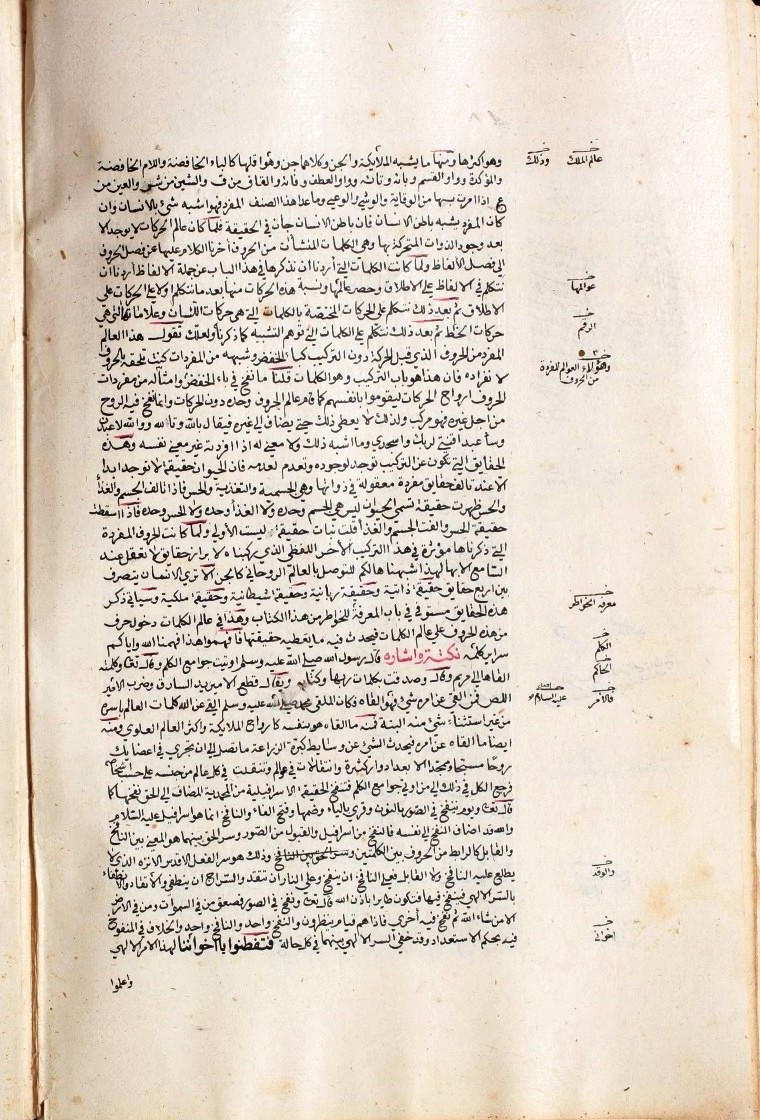 وهو اكثرها ومنها ما يشبه الملايكة والجن وكلاهما جن وهو اقلها كالباء الخافضة واللام الخافضة
والمؤكدة وواو القسم وبائه وتائه وواو العطف وفائه والقاف من ق والشين من ش والعين من
ع اذا امرت بها من الوقاية والوشي والوعي وما عدا هذا الصنف المفرد فهو اشبه شئ بالانسان وان
كان المفرد يشبه باطن الانسان فان باطن الانسان جان في الحقيقة فلما كان عالم الحركات لا يوجد الا
بعد وجود الذوات المتحركة بها وهي الكلمات المنشأت من الحروف اخرنا الكلام عليها عن فصل الحروف
الى فصل الالفاظ ولما كانت الكلمات التي اردنا ان نذكرها في هذا الباب عن جملة الالفاظ اردنا ان
نتكلم في الالفاظ على الاطلاق وحصر عالمها ونسبة هذه الحركات منها بعد ما نتكلم اولا على الحركات على
الاطلاق ثم بعد ذلك نتكلم على الحركات المختصة بالكلمات التي هي حركات اللسان وعلاماتها التي هي
حركات الخط ثم بعد ذلك نتكلم على الكلمات التي توهم التشبيه كما ذكرنا ولعلك تقول هذا العالم
المفرد من الحروف الذي قبل الحركة دون التركيب كباء الخفض وشبهه من المفردات كيف تلحقه بالحروف
لانفراده فان هذا هو باب التركيب وهو الكلمات قلنا ما نفخ في باء الخفض وامثاله من مفردات
الحروف ارواح الحركات ليقوموا بانفسهم كما قام عالم الحروف وحده دون الحركات وانما نفخ فيه الروح
من اجل غيره فهو مركب ولذلك لا يعطي ذلك حتى يضاف الى غيره فيقال بالله وتالله ووالله لاعبدن
وسأعبد اقنتي لربك واسجدي وما اشبه ذلك ولا معنى له اذا افردته غير معنى نفسه وهذه
الحقايق التي تكون عن التركيب توجد لوجوده وتعدم لعدمه فان الحيوان حقيقته لا توجد ابدا
الا عند تالف حقايق مفردة معقولة في ذواتها وهي الجسمية والتغذية والحس فاذا تالف الجسم والغذا
والحس ظهرت حقيقة تسمى الحيوان ليس هي الجسم وحده ولا الغذا وحده ولا الحس وحده فاذا اسقطت
حقيقة الحس والفت الجسم والغذا قلت نبات حقيقة ليست الاولى ولما كانت الحروف المفردة
التي ذكرناها مؤثرة في هذا التركيب الاخر اللفظي الذي ركبناه لابراز حقايق لا تعقل عند
السامع الا بها لهذا شبهناها لكم للتوصل بالعالم الروحاني كالجن الا ترى الانسان يتصرف
بين اربع حقايق حقيقة ذاتية وحقيقة ربانية وحقيقة شيطانية وحقيقة ملكية وسياتي ذكر
هذه الحقايق مستوفى في باب المعرفة للخواطر من هذا الكتاب وهذا في عالم الكلمات دخول حرف
من هذه الحروف على عالم الكلمات فيحدث فيه ما يعطيه حقيقتها فافهموا هذا فهمنا الله واياكم
سراير كلمه نكتة واشاره قال رسول الله صلى الله عليه وسلم اوتيت جوامع الكلم وقال تعالى وكلمته
القاها الى مريم وقال وصدقت بكلمات ربها وكتابه ويقال قطع الامير يد السارق وضرب الامير
اللص فمن القى عن امره شئ فهو القاه فكان الملقى محمد صلى الله عليه وسلم القى عن الله كلمات العالم باسره
من غير استثناء شئ منه البتة فمنه ما القاه هو بنفسه كارواح الملايكة واكثر العالم العلوي ومنه
ايضا ما القاه عن امره فيحدث الشئ عن وسايط كبرة الزراعة ما تصل الى ان تجري في اعضايك
روحا مسبحا وممجدا الا بعد ادوار كثيرة وانتقالات في عوالم وتنقلت في كل عالم من جنسه على حسب اشخاصه
فرجع الكل في ذلك الى من اوتي جوامع الكلم فنفخ الحقيقة الاسرافيلية من المحمدية المضاف الى الحق نفخها كما
قال تعالى ويوم ننفخ في الصور بالنون وقرئ بالياء وضمها وفتح الفاء والنافخ انما هو اسرافيل عليه السلام
والله قد اضاف النفخ الى نفسه فالنفخ من اسرافيل والقبول من الصور وسر الحق بينهما هو المعنى بين النافخ
والقابل كالرابط من الحروف بين الكلمتين وسر الحق بين النافخ وذلك هو سر الفعل الاقدس الانزه الذي لا
يطلع عليه النافخ ولا القابل فعلى النافخ ان ينفخ وعلى النار ان تتقد والسراج ان ينطفي والاتقاد والانطفاء
بالسر الالهي فينفخ فيها فتكون طايرا باذن الله قال تعالى ونفخ في الصور فصعق من في السموات ومن في الارض
الا من شاء الله ثم نفخ فيه اخرى فاذا هم قيام ينظرون والنفخ واحد والنافخ واحد والخلاف في المنفوخ
فيه بحكم الاستعداد وقد خفي السر الالهي بينهما في كل حالة فتفطنوا يا اخواننا لهذا الامر الالهي
واعلموا
عالم الملك وذلك
عوالمها
الرقم
وهؤلاء العوالم المفردة
من الحروف
معرفة الخواطر
الكلم
الحاكم
فالامر
عليه السلام
والوقد
اخواني